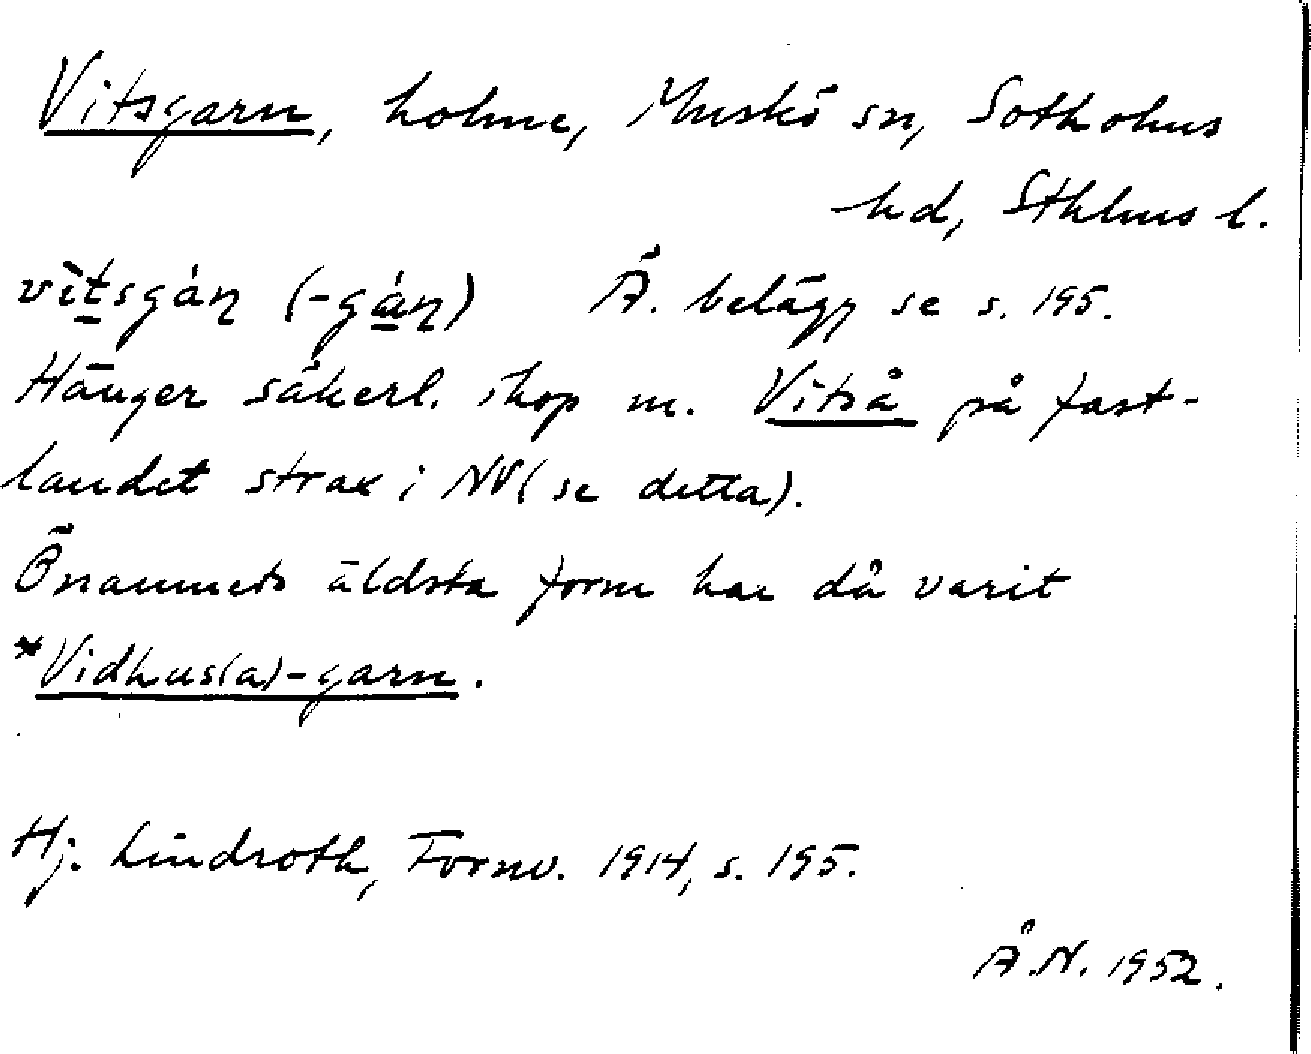 Vitsgarn, holme, Muskö sn, Sotholms
hd, Sthlms l.
vìtsgáɳ (-gáɳ) Ä. belägg se s. 195.
Hänger säkerl. ihop m. Vitså på fast-
landet strax i NV (se detta).
Önamnets äldsta form har då varit
*Vidhus(a)-garn.
Hj. Lindroth, Fornv. 1914, s. 195.
Å.N. 1952.